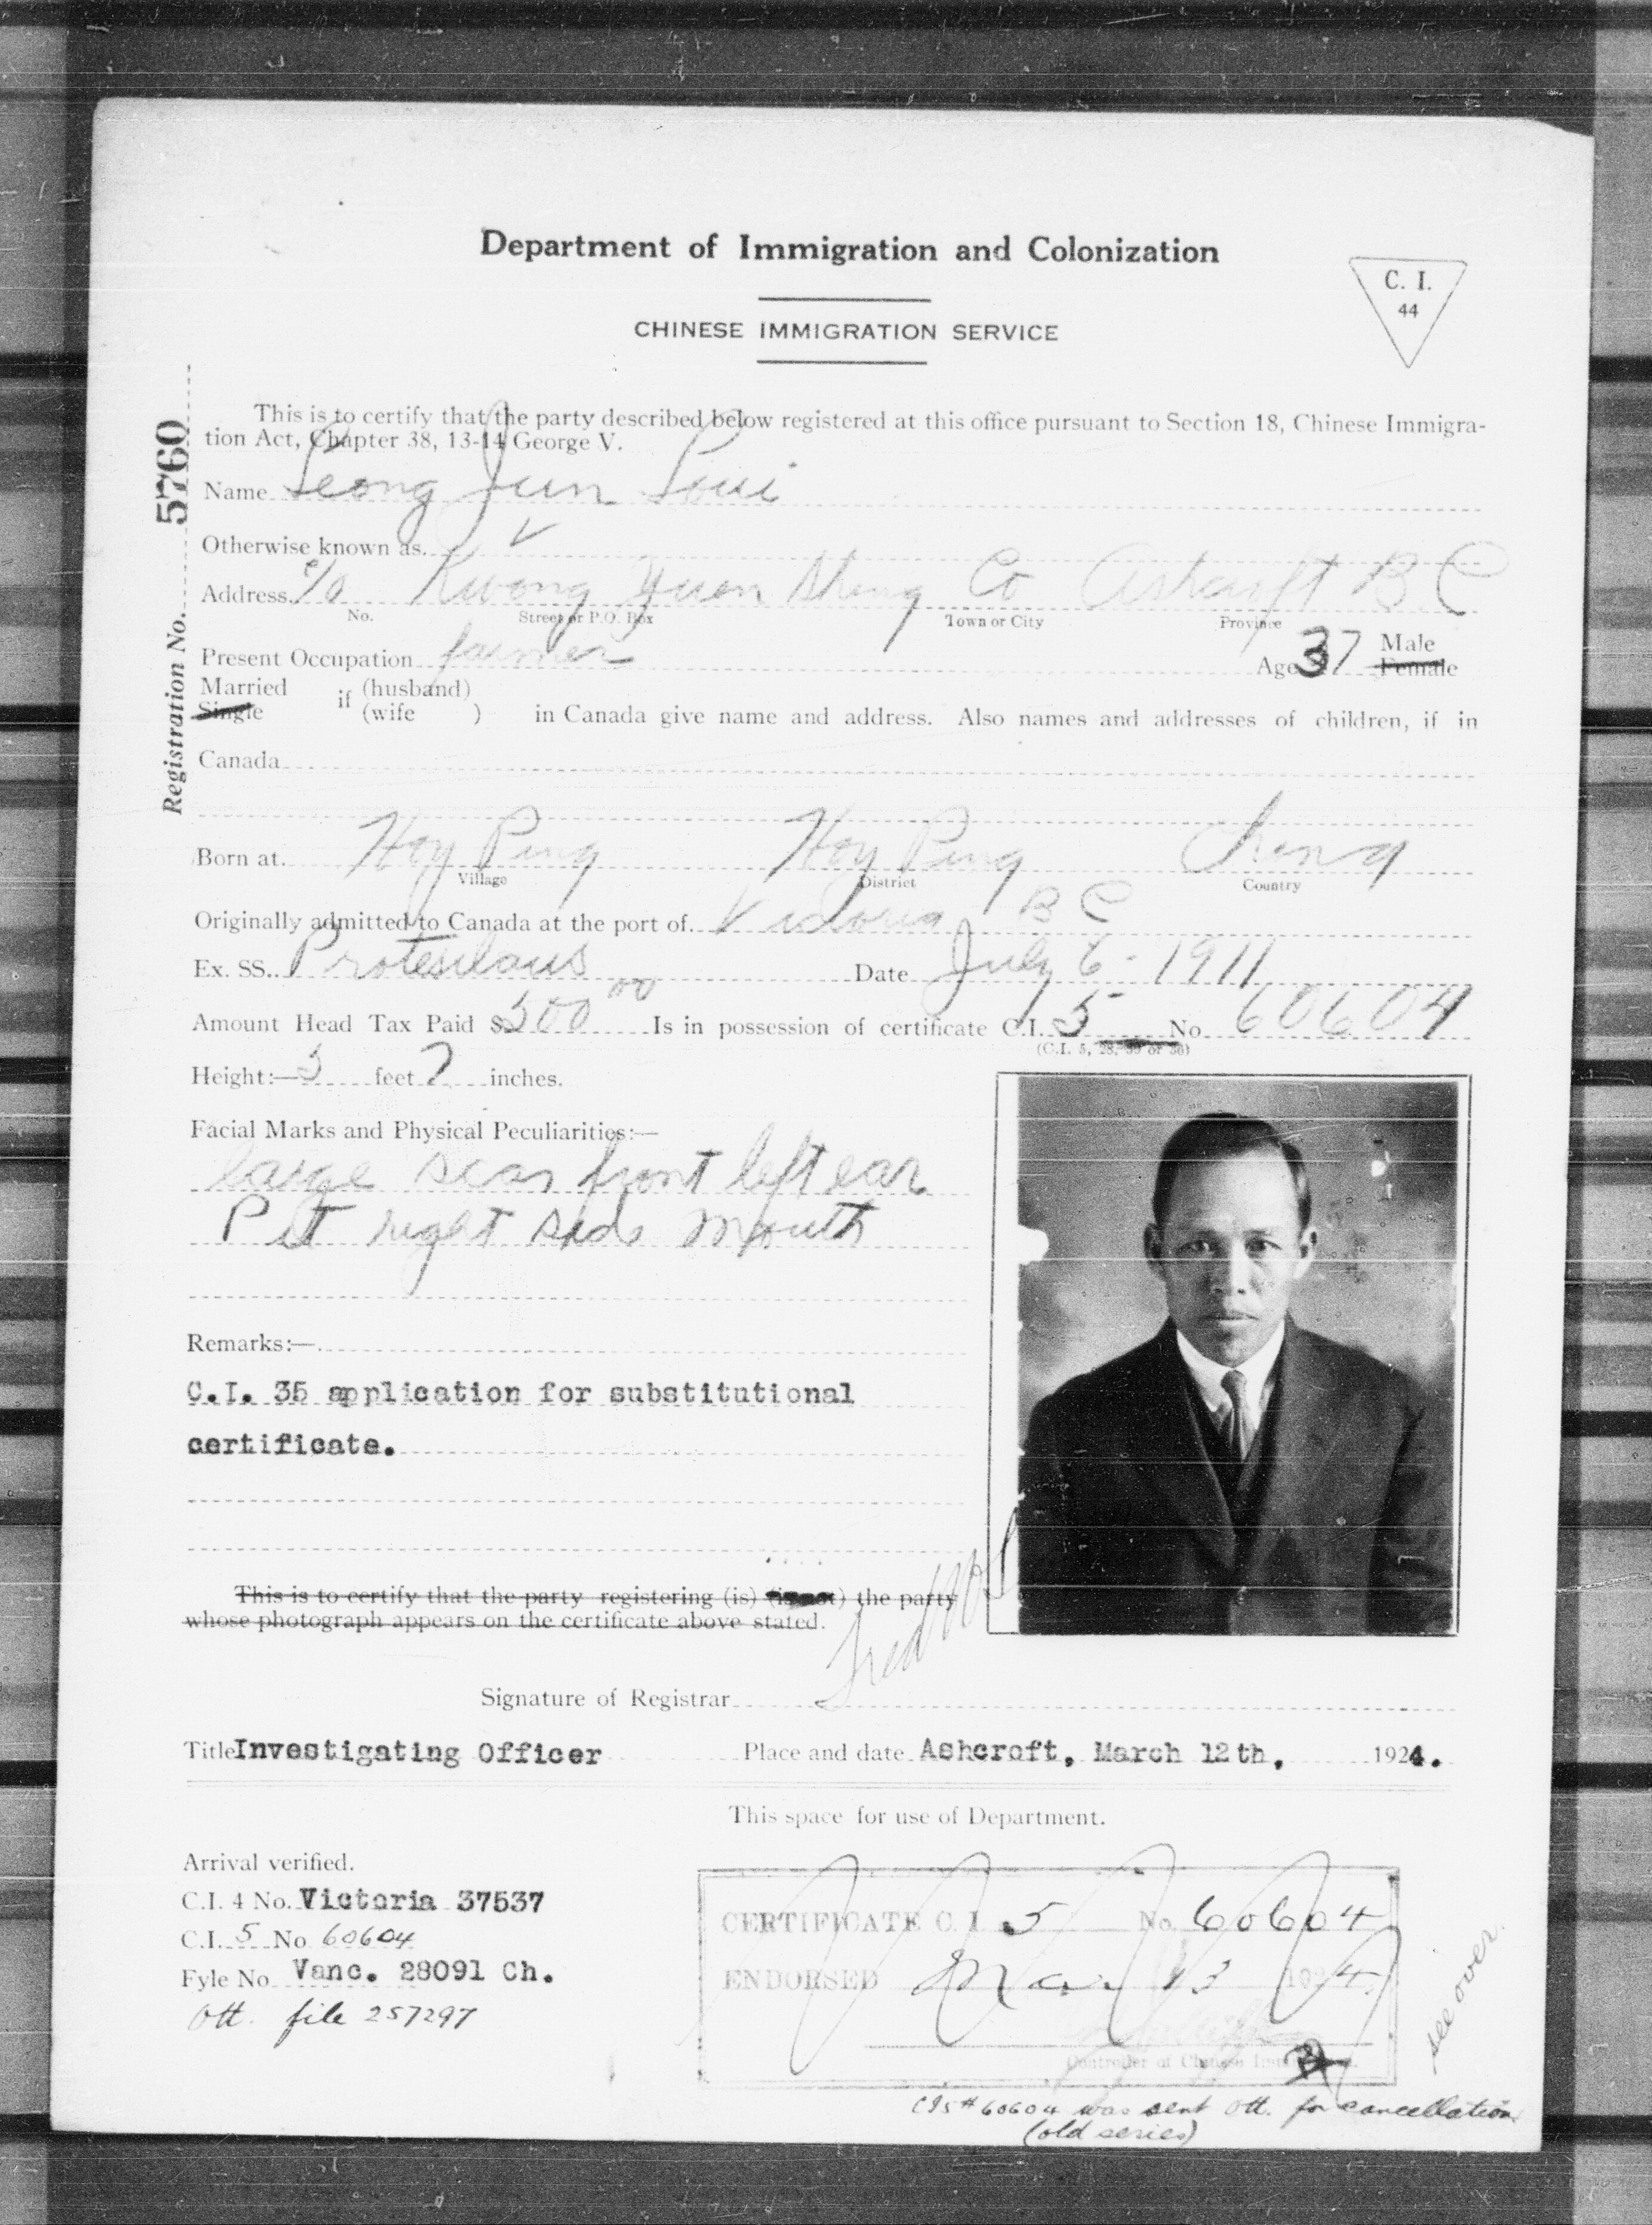 Department of Immigration and Colonization
C. I.
44
CHINESE IMMIGRATION SERVICE
Registration No. 5760
This is to certify that the party described below registered at this office pursuant to Section 18, Chinese Immigra-
tion Act, Chapter 38, 13-14 George V.
Name Leong Jun Loui
Otherwise known as
Address c/o Kwong Yuen Shing Co Ashcroft B C
No. Street or P.O. Box Town or City Province
Present Occupation farmer Age 37 Male Female
Married
Single if (husband) (wife ) in Canada give name and address. Also names and addresses of children, if in
Canada
Born at Hoy Ping Hoy Ping China
Village District Country
Originally admitted to Canada at the port of Victoria B C
Ex. SS. Protesilaus Date July 6 - 1911
Amount Head Tax Paid $500 00 Is in possession of certificate C.I. 5 No. 60604
(C.I. 5, 28, 30 or 36)
Height:— 5 feet 7 inches.
Facial Marks and Physical Peculiarities:—
large scar front left ear
Pit right side mouth
Remarks:—
C.I. 35 application for substitutional
certificate.
This is to certify that the party registering (is) (is not) the party
whose photograph appears on the certificate above stated.
Signature of Registrar Fred
Title Investigating Officer Place and date Ashcroft, March 12th, 1924.
This space for use of Department.
Arrival verified.
C.I. 4 No. Victoria 37537
C.I. 5 No 60604
Fyle No. Vanc. 28091 Ch.
Ott. file 257297
CERTIFICATE C. I. 5 No. 60604
ENDORSED Mar 13 1924
Controller of Chinese
see over
CI5 # 60604 was sent Ott. for cancellation
(old series)